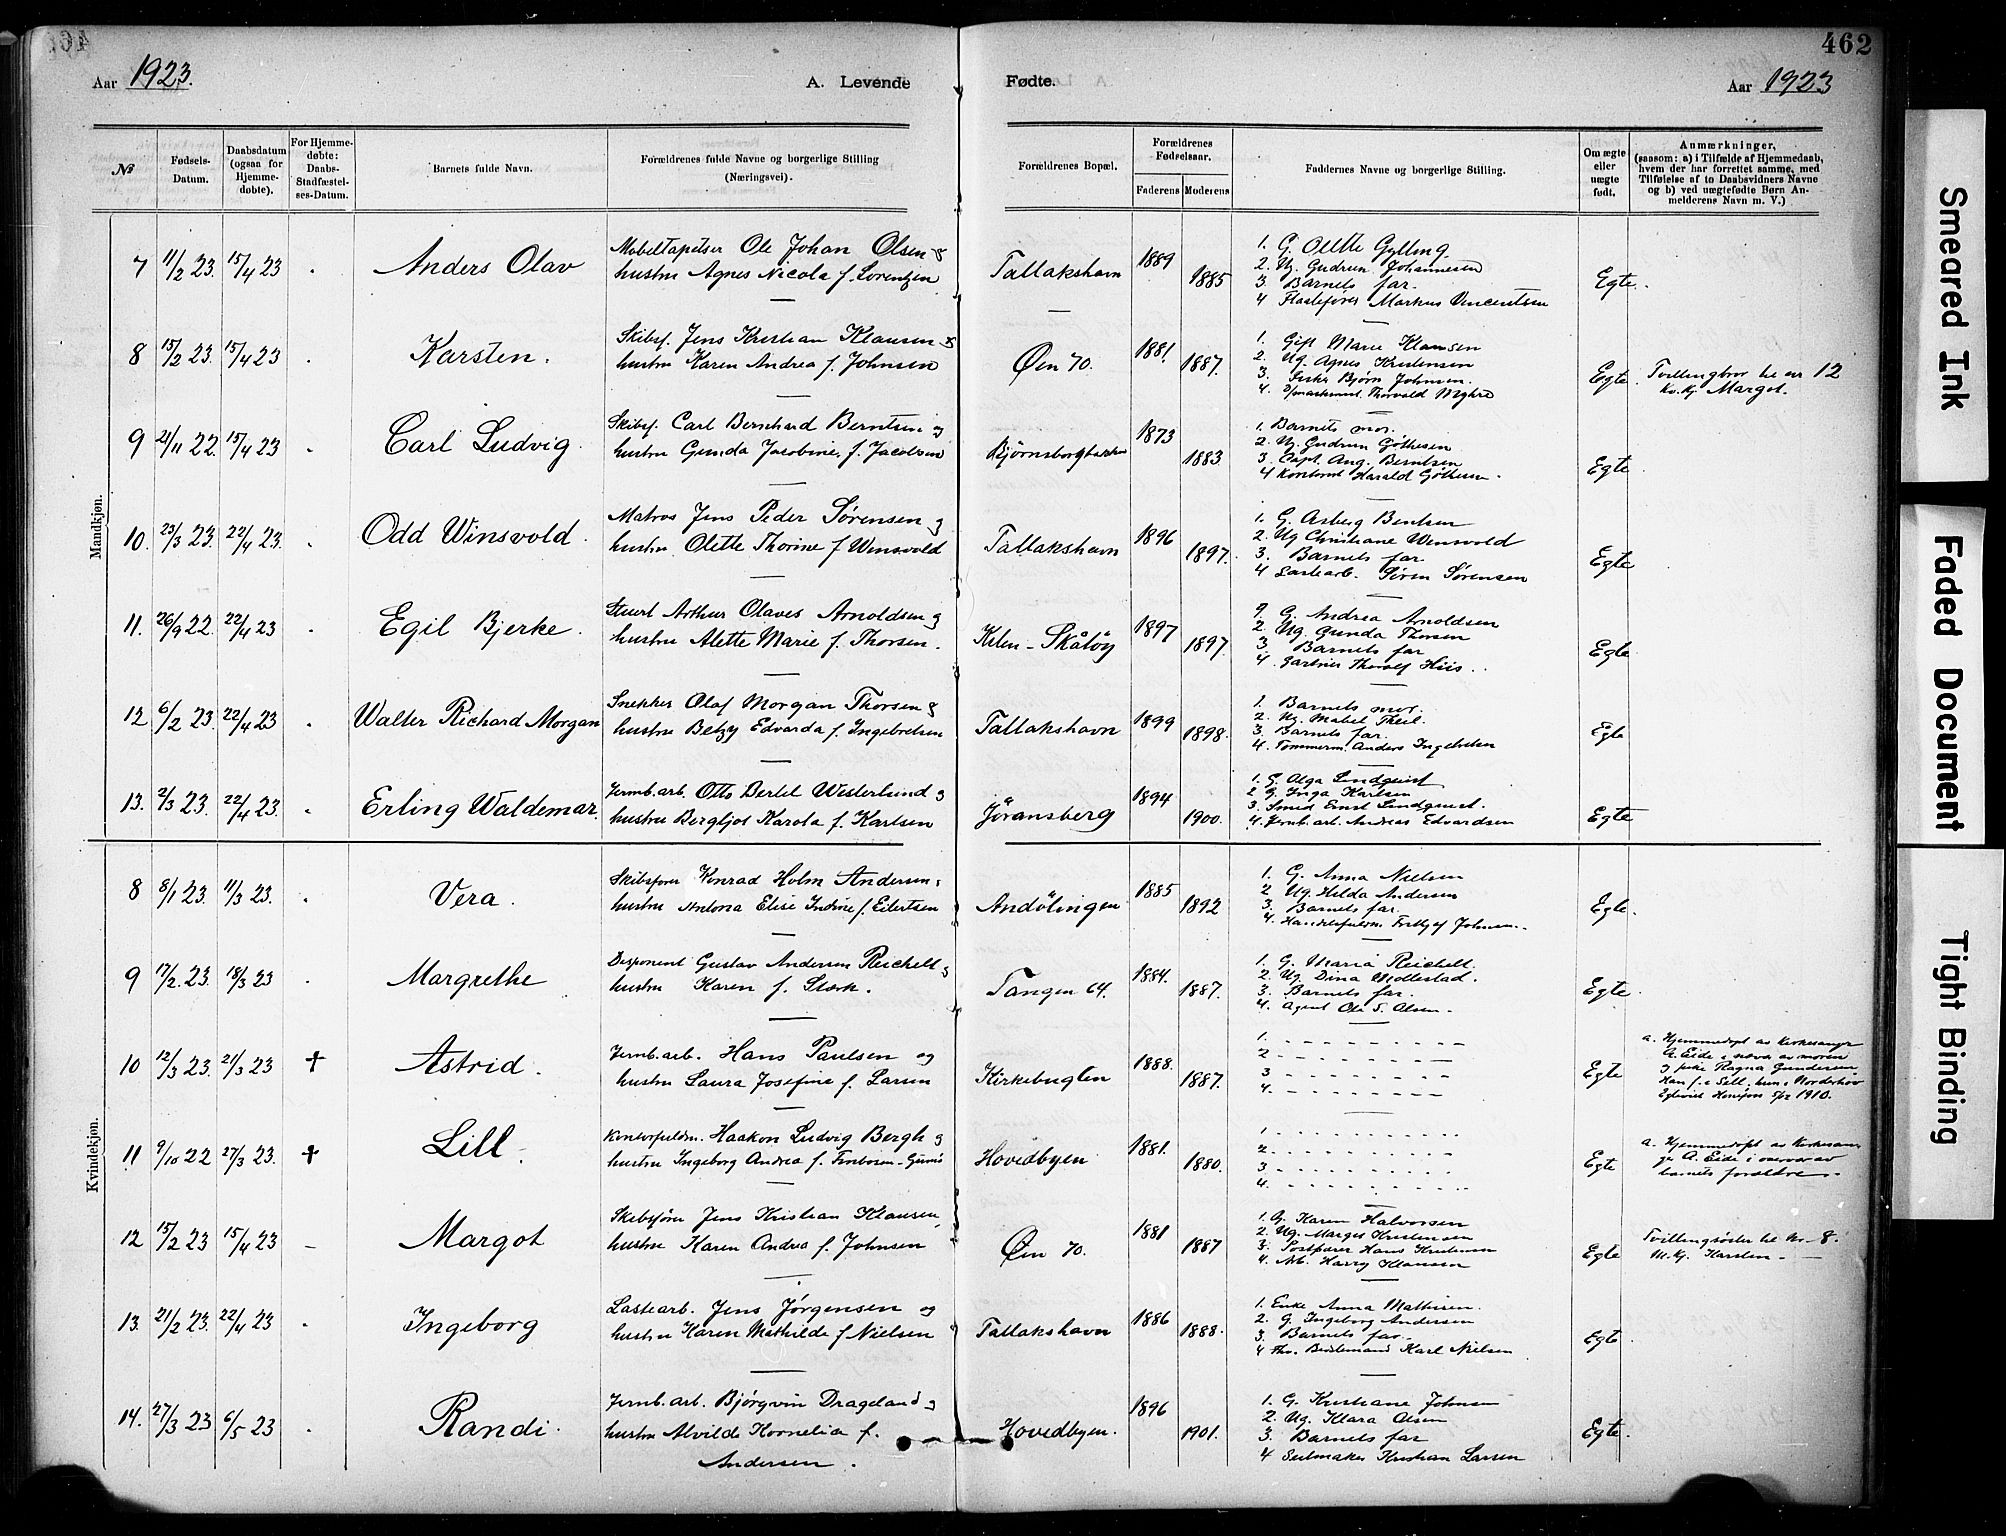 462
Aar 1923.
A. Levende Fødte.
Aar 1923
№
Fødsels-Datum.
Daabsdatum (ogsaa for Hjemmedøbte).
For Hjemmedøbte: Daabs-Stadfæstelses-Datum.
Barnets fulde Navn.
Forældrenes fulde Navne og borgerlige Stilling (Næringsvei).
Forældrenes Bopæl.
Forældrenes Fødselsaar.
Faderens
Moderens
Faddernes Navne og borgerlige Stilling.
Om ægte eller uægte født.
Anmærkninger,
(saasom: a) i Tilfælde af Hjemmedaab,
hvem der har forrettet samme, med
Tilføielse af to Daabsvidners Navne
og b) ved uægtefødte Børn Anmelderens Navn m. V.)
Mandkjøn.
7 11/2 23. 15/4 23 Anders Olav
Møbeltapetser Ole Johan Olsen &
hustru Agnes Nicola f. Lorentzen
Tallakshavn 1889 1885
1. G. Olette Gylling.
2. Ug. Gudrun Johannesen
3. Barnets far.
4 Markus Vincentsen
Egte.
8 15/2 23. 15/4 23 Karsten.
Skibsf. Jens Kristian Klausen &
hustru Karen Andrea f. Johnsen
Øen 70. 1881. 1887.
1. Gift Marie Klausen
2. Ug. Agnes Kristensen
3. Bjørn Johnsen.
4. Thorvald Myhre
Egte. Tvillingbror til nr 12
Kv. kj. Margot.
9 21/11 22. 15/4 23 Carl Ludvig.
Skibsf. Carl Bernhard Berntsen og
hustru Gunda Jacobine f. Jacobsen
Bjørnsborgbakken 1873 1883
1. Barnets mor.
2. Ug. Gudrun Gøthesen
3. Capt. Aug. Berntsen
4 Kontorist Harald Gøthesen.
Egte
10. 23/3 23. 22/4 23. Odd Winsvold.
Matros Jens Peder Sørensen og
hustru Olette Thorine f Winsvold
Tallakshavn 1896 1897.
1. G. Asberg Bentsen
2. Ug Christiane Winsvold
3. Barnets far
4 Lastearb. Søren Sørensen
Egte
11. 26/9 22. 22/4 23 Egil Bjerke.
Stuert Arthur Olaves Arnoldsen og
hustru Alette Marie f. Thorsen.
Kilen - Skåtøy 1897 1897.
1. G. Andrea Arnoldsen
2. Ug. Gunda Thorsen
3. Barnets far
4. Gartner Thorolf Hiis.
Egte
12 6/2 23. 22/4 23 Walter Richard Morgan
Snekker Olaf Morgan Thorsen &
hustru Betzy Edvarda f. Ingebretsen
Tallakshavn 1899 1898.
1. Barnets mor.
2. Ug. Mabel Theil.
3. Barnets far.
4. Tømmerm. Anders Ingebretsen
Egte
13. 2/3 23. 22/4 23. Erling Waldemar.
Jernb. arb. Otto Bertel Westerlund og
hustru Bergljot Karola f. Karlsen
Jøransberg 1894 1900.
1. G. Olga Lindquist
2 G. Inga Karlsen
3. Smed Ernst Lindquist.
4. Jernb. arb. Andreas Edvardsen
Egte
Kvindekjøn.
8 8/1 23. 11/3 23. Vera.
Skibsfører Konrad Holm Andersen
hustru Antona Elise Indine f. Eilertsen
Andølingen 1885 1892
1. G. Anna Nielsen
2 Ug. Hilda Andersen
3. Barnets far.
4. Johnsen.
Egte.
9 17/2. 23. 18/3 23 Margrethe
Disponent Gustav Andersen Reichelt og
hustru Karen f. Stork.
Tangen 64. 1884. 1887.
1. G. Maria Reichelt.
2. Ug. Dina Midtestad.
3. Barnets far.
4. Agent Ole S. Olsen.
Egte.
10 12/3 23. 21/3 23 + Astrid.
Jernb. arb. Hans Paulsen og
hustru Laura Josefine f. Larsen
Kirkebugten 1888. 1887.
1.
2
3
4.
Egte
a. Hjemmedøpt av Kirkesanger
A. Eide i nærvær av moren
og Ragna Gundersen
Han f. i Sell, hun i Norderhov
Egteviet Hønefoss 5/12 1910.
11 9/10 22 27/3 23. + Lill.
Kontorfuldm. Haakon Ludvig Bergh og
hustru Ingeborg Andrea f.
Hovedbyen 1881. 1880.
1.
2.
3.
4.
Egte
a. Hjemmedøpt av Kirkesanger
A. Eide i overvær av
barnets forældre.
12 15/2 23 15/4 23 Margot
Skibsfører Jens Kristian Klausen,
hustru Karen Andrea f. Johnsen
Øen 70. 1881 1887
1. G. Karen Halvorsen
2. Ug. Margit Kristensen
3. Postfører Hans Kristensen
4. Arb. Harry Klausen
Egte Tvillingsøster til Nr 8.
M. kj. Karsten.
13. 21/2 23. 22/4 23 Ingeborg
Lastearb. Jens Jørgensen og
hustru Karen Mathilde f Nielsen
Tallakshavn 1886 1888.
1. Enke Anna Mathisen.
2. G. Ingeborg Andersen
3. Barnets far.
4 Karl Nielsen
Egte
14. 27/3 23 6/5 23 Randi.
Jernb. arb. Bjørgvin Drageland og
hustru Alvilde Kornelia f.
Andersen.
Hovedbyen. 1896 1901.
1. G. Kristiane Johnsen
2. Ug. Klara Olsen
3. Barnets far
4 Seilmaker Kristian Larsen
Egte.
Smeared Ink
Faded Document
Tight Binding